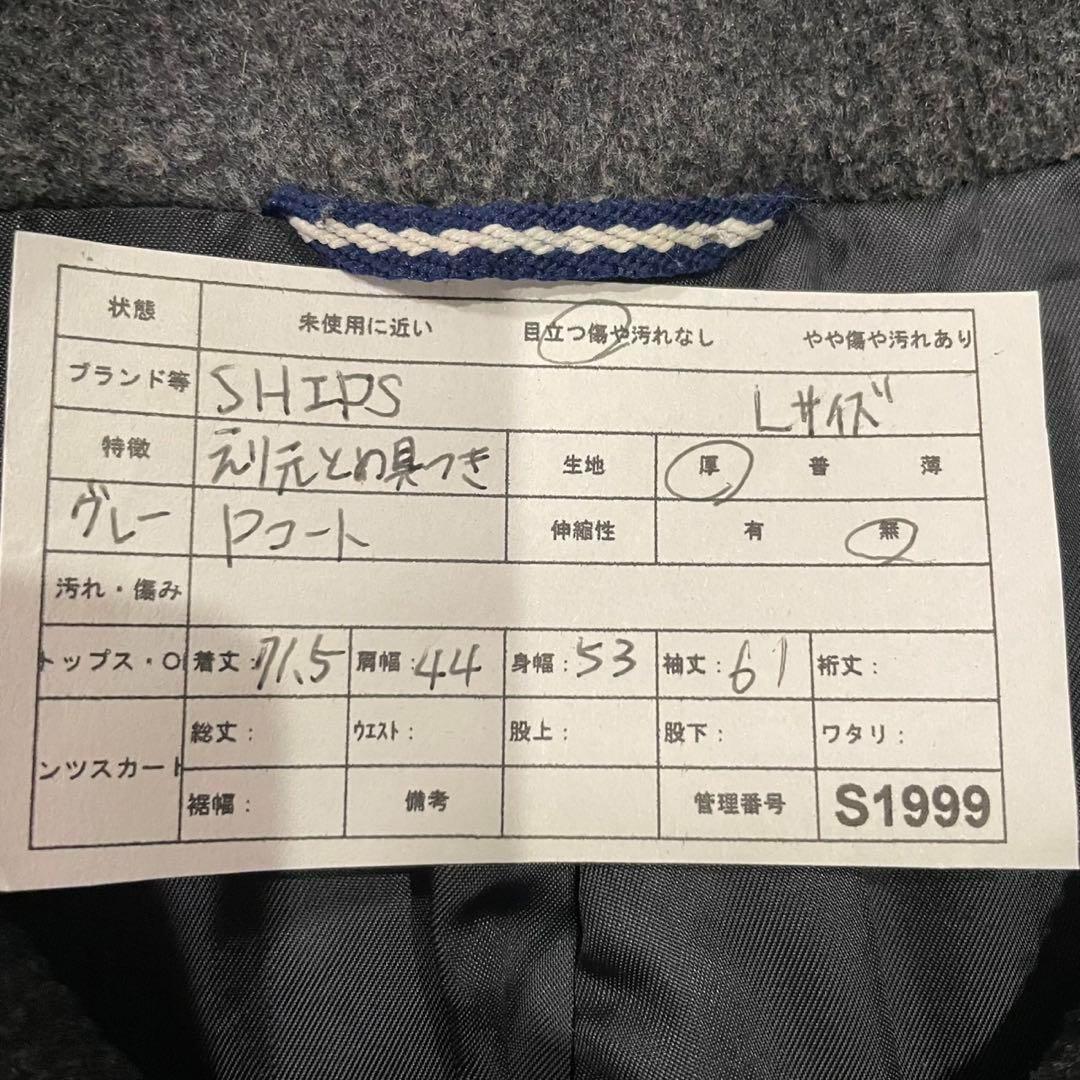 状態 未使用に近い 目立つ傷や汚れなし やや傷や汚れあり
ブランド等 SHIPS Lサイズ
特徴 えり元とめ具つき 生地 厚 普 薄
グレー Pコート 伸縮性 有 無
汚れ・傷み
トップス・O 着丈:71.5 肩幅:44 身幅:53 袖丈:61 裄丈:
ンツスカート 総丈: ウエスト: 股上: 股下: ワタリ:
裾幅: 備考 管理番号 S1999